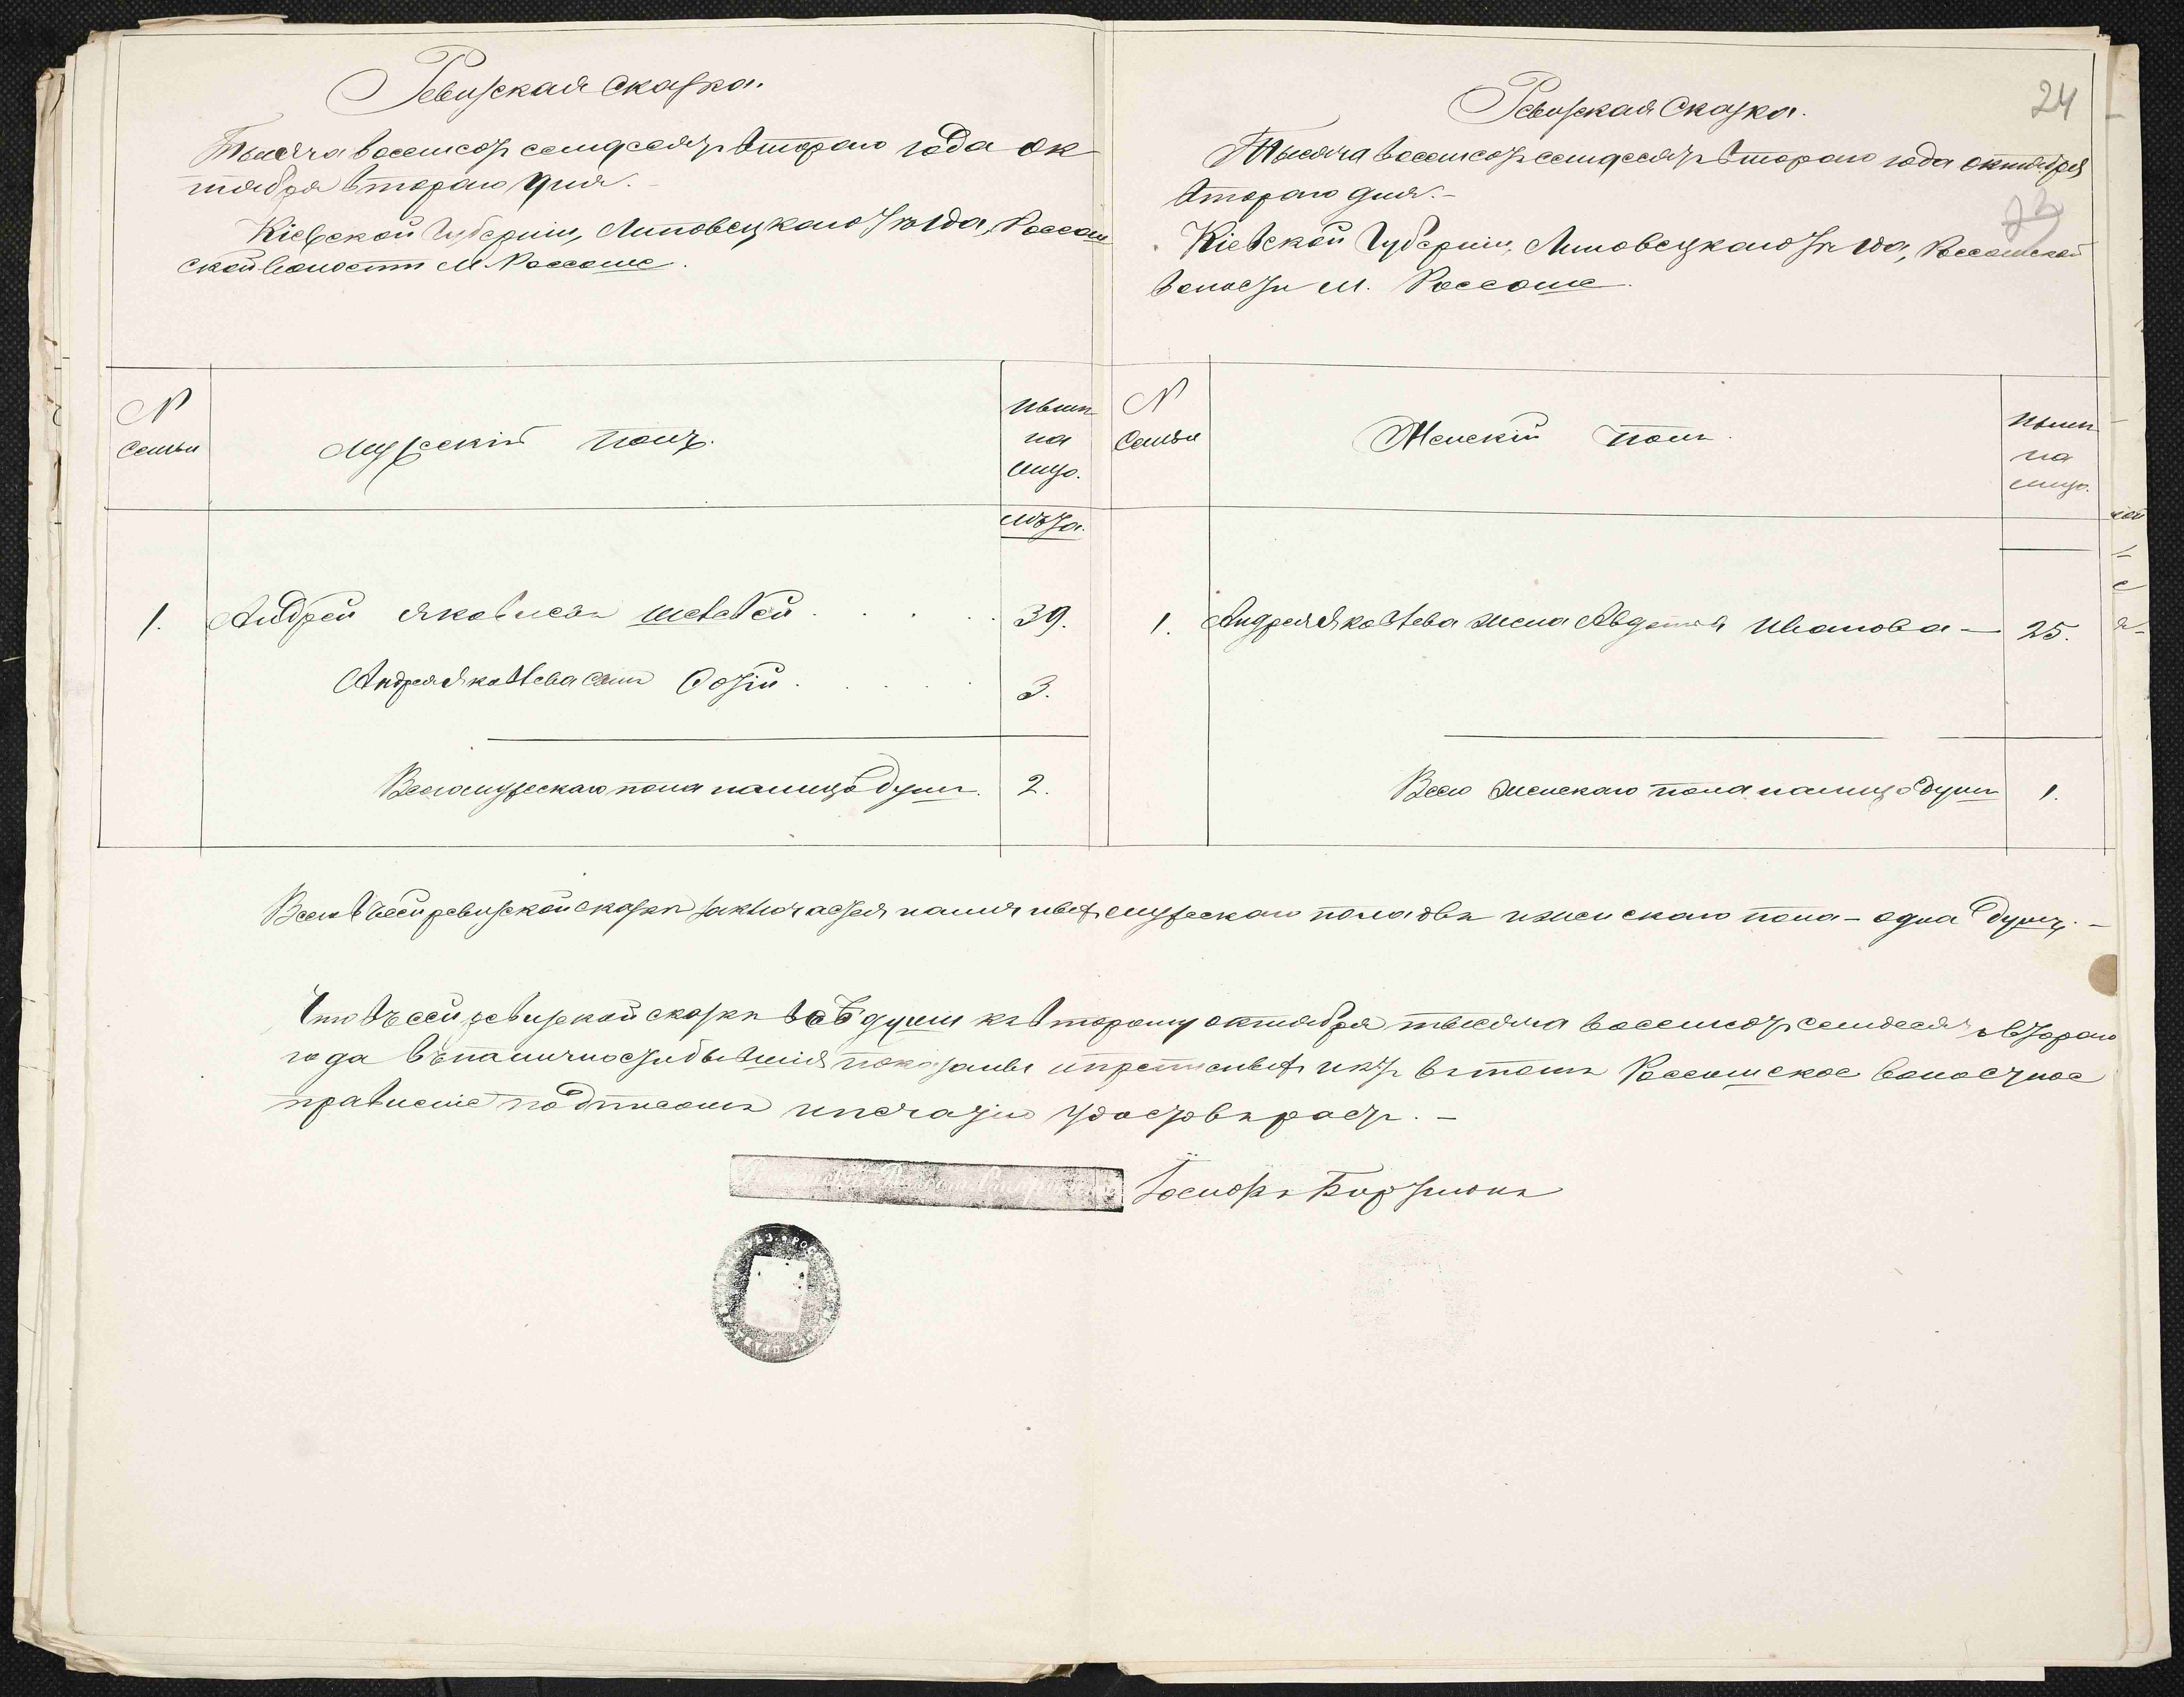 Ревизская сказка.
Тысяча восемсотъ семдесятъ втораго года ок
тября втораго дня.
Кіевской Губерніи, Липовецкаго Уѣзда, Россош
ской волости М. Россоше.
N
семьи
Мужескій полъ.
Нынѣ
на
лицо.
лѣта.
1. Андрей Яковлевъ . . . . 39.
Андрея Яковлева сынъ . . . . 3.
Всего мужескаго пола налицо душъ. 2.
Ревизская Сказка.
24
Тысяча восемсотъ семдесятъ втораго года октября
втораго дня.-
Кіевской Губерніи, Липовецкаго Уѣзда, Россошской
волости М. Россоше.
N
Семьи
Женскій полъ.
Нынѣ
на
лицо.
1. Андрея Яковлева жена Авдотія Иванова — 25.
Всего женскаго пола налицо душъ 1.
Всего въ сей ревизской сказкѣ заключается мужескаго пола двѣ и женскаго пола – одна душъ. –
Что въ сей ревизской сказкѣ всѣ души къ второму октября тысяча восемсотъ семдесятъ втораго
года въ наличности бывшія показаны и нѣтъ въ томъ Россошское волостное
правленіе подписомъ и печатью удостовѣряетъ. –